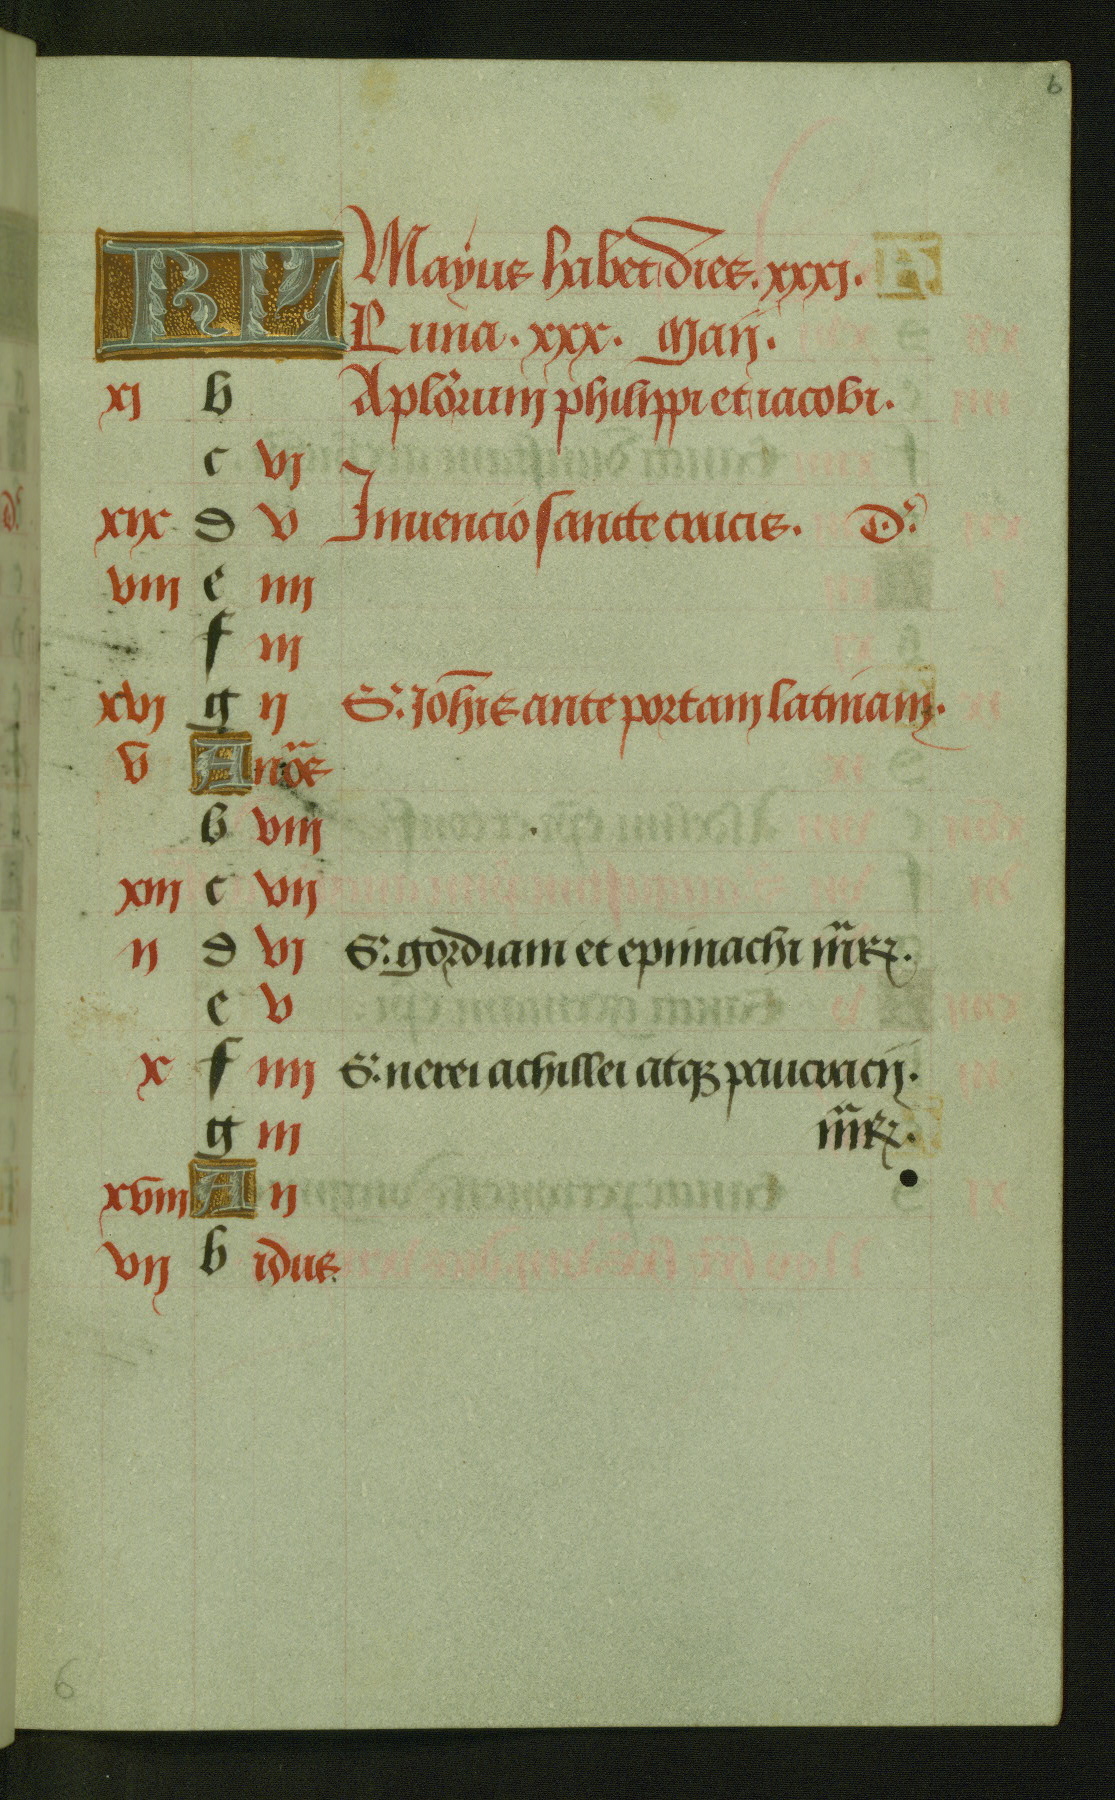 6
KL Mayus habet dies. xxxj.
Luna. xxx. Maij.
xj b Aplorum philippi et iacobi.
c vj
xix d v Inuencio sancte crucis. D.
viij e iiij
f iij
xvj g ij S. Johis ante portam latinam.
v A noe
b viij
xiij c vij
ij d vj S. gordiam et epimachi mr.
e v
x f iiij S. nerei achillei atq; pancracij.
g iij mr.
xviij A ij
vij b idus.
6